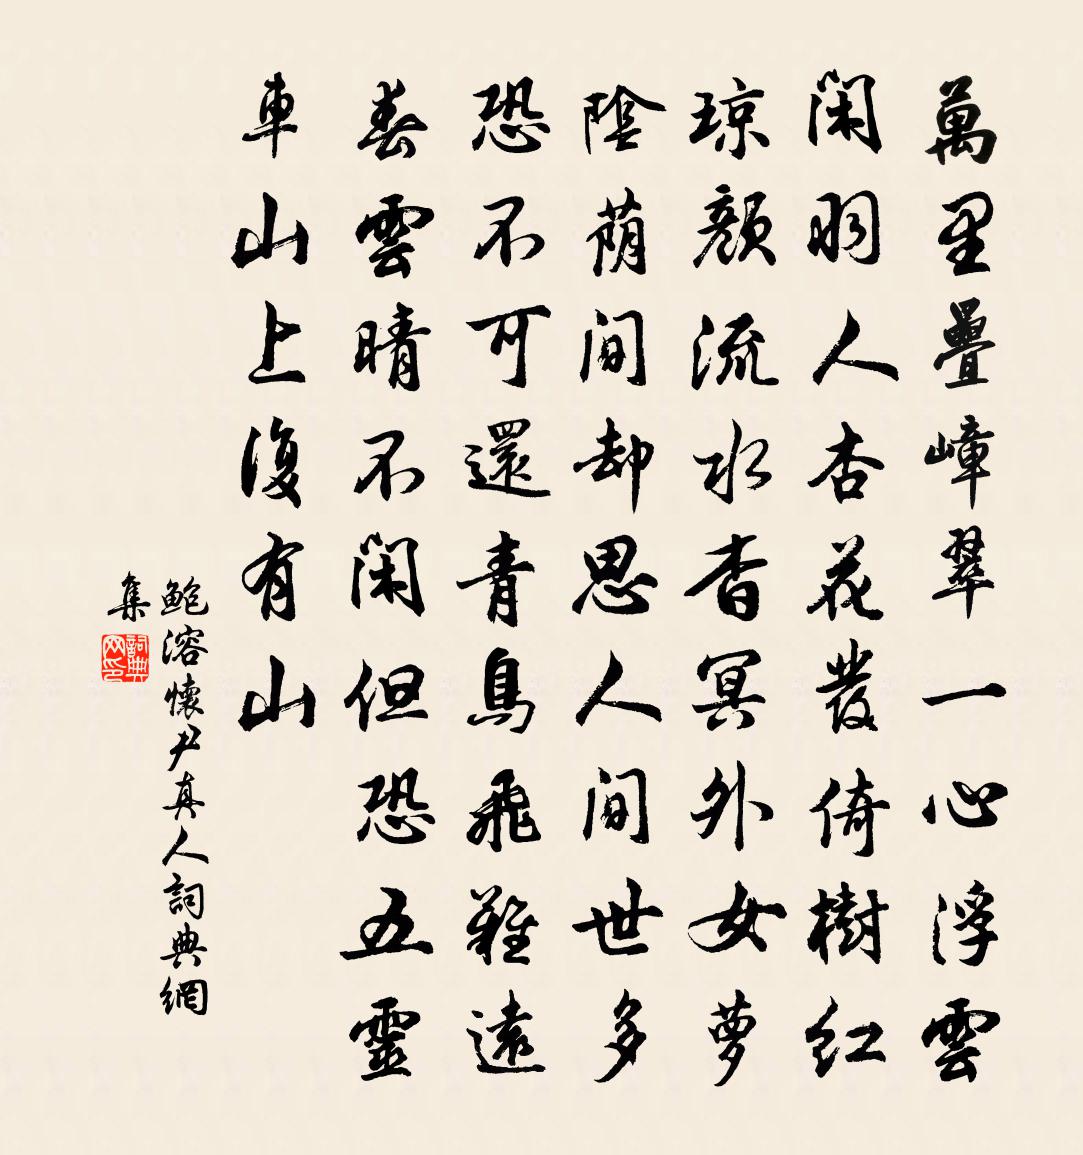 萬里疊嶂翠一心浮雲
閑羽人杏花發倚樹紅
琼顏流水杳冥外女萝
陰荫間却思人間世多
恐不可還青鳥飛難遠
春雲晴不閑但恐五靈
車山上復有山
鮑溶懷尹真人詞典網
集
詞典
网印